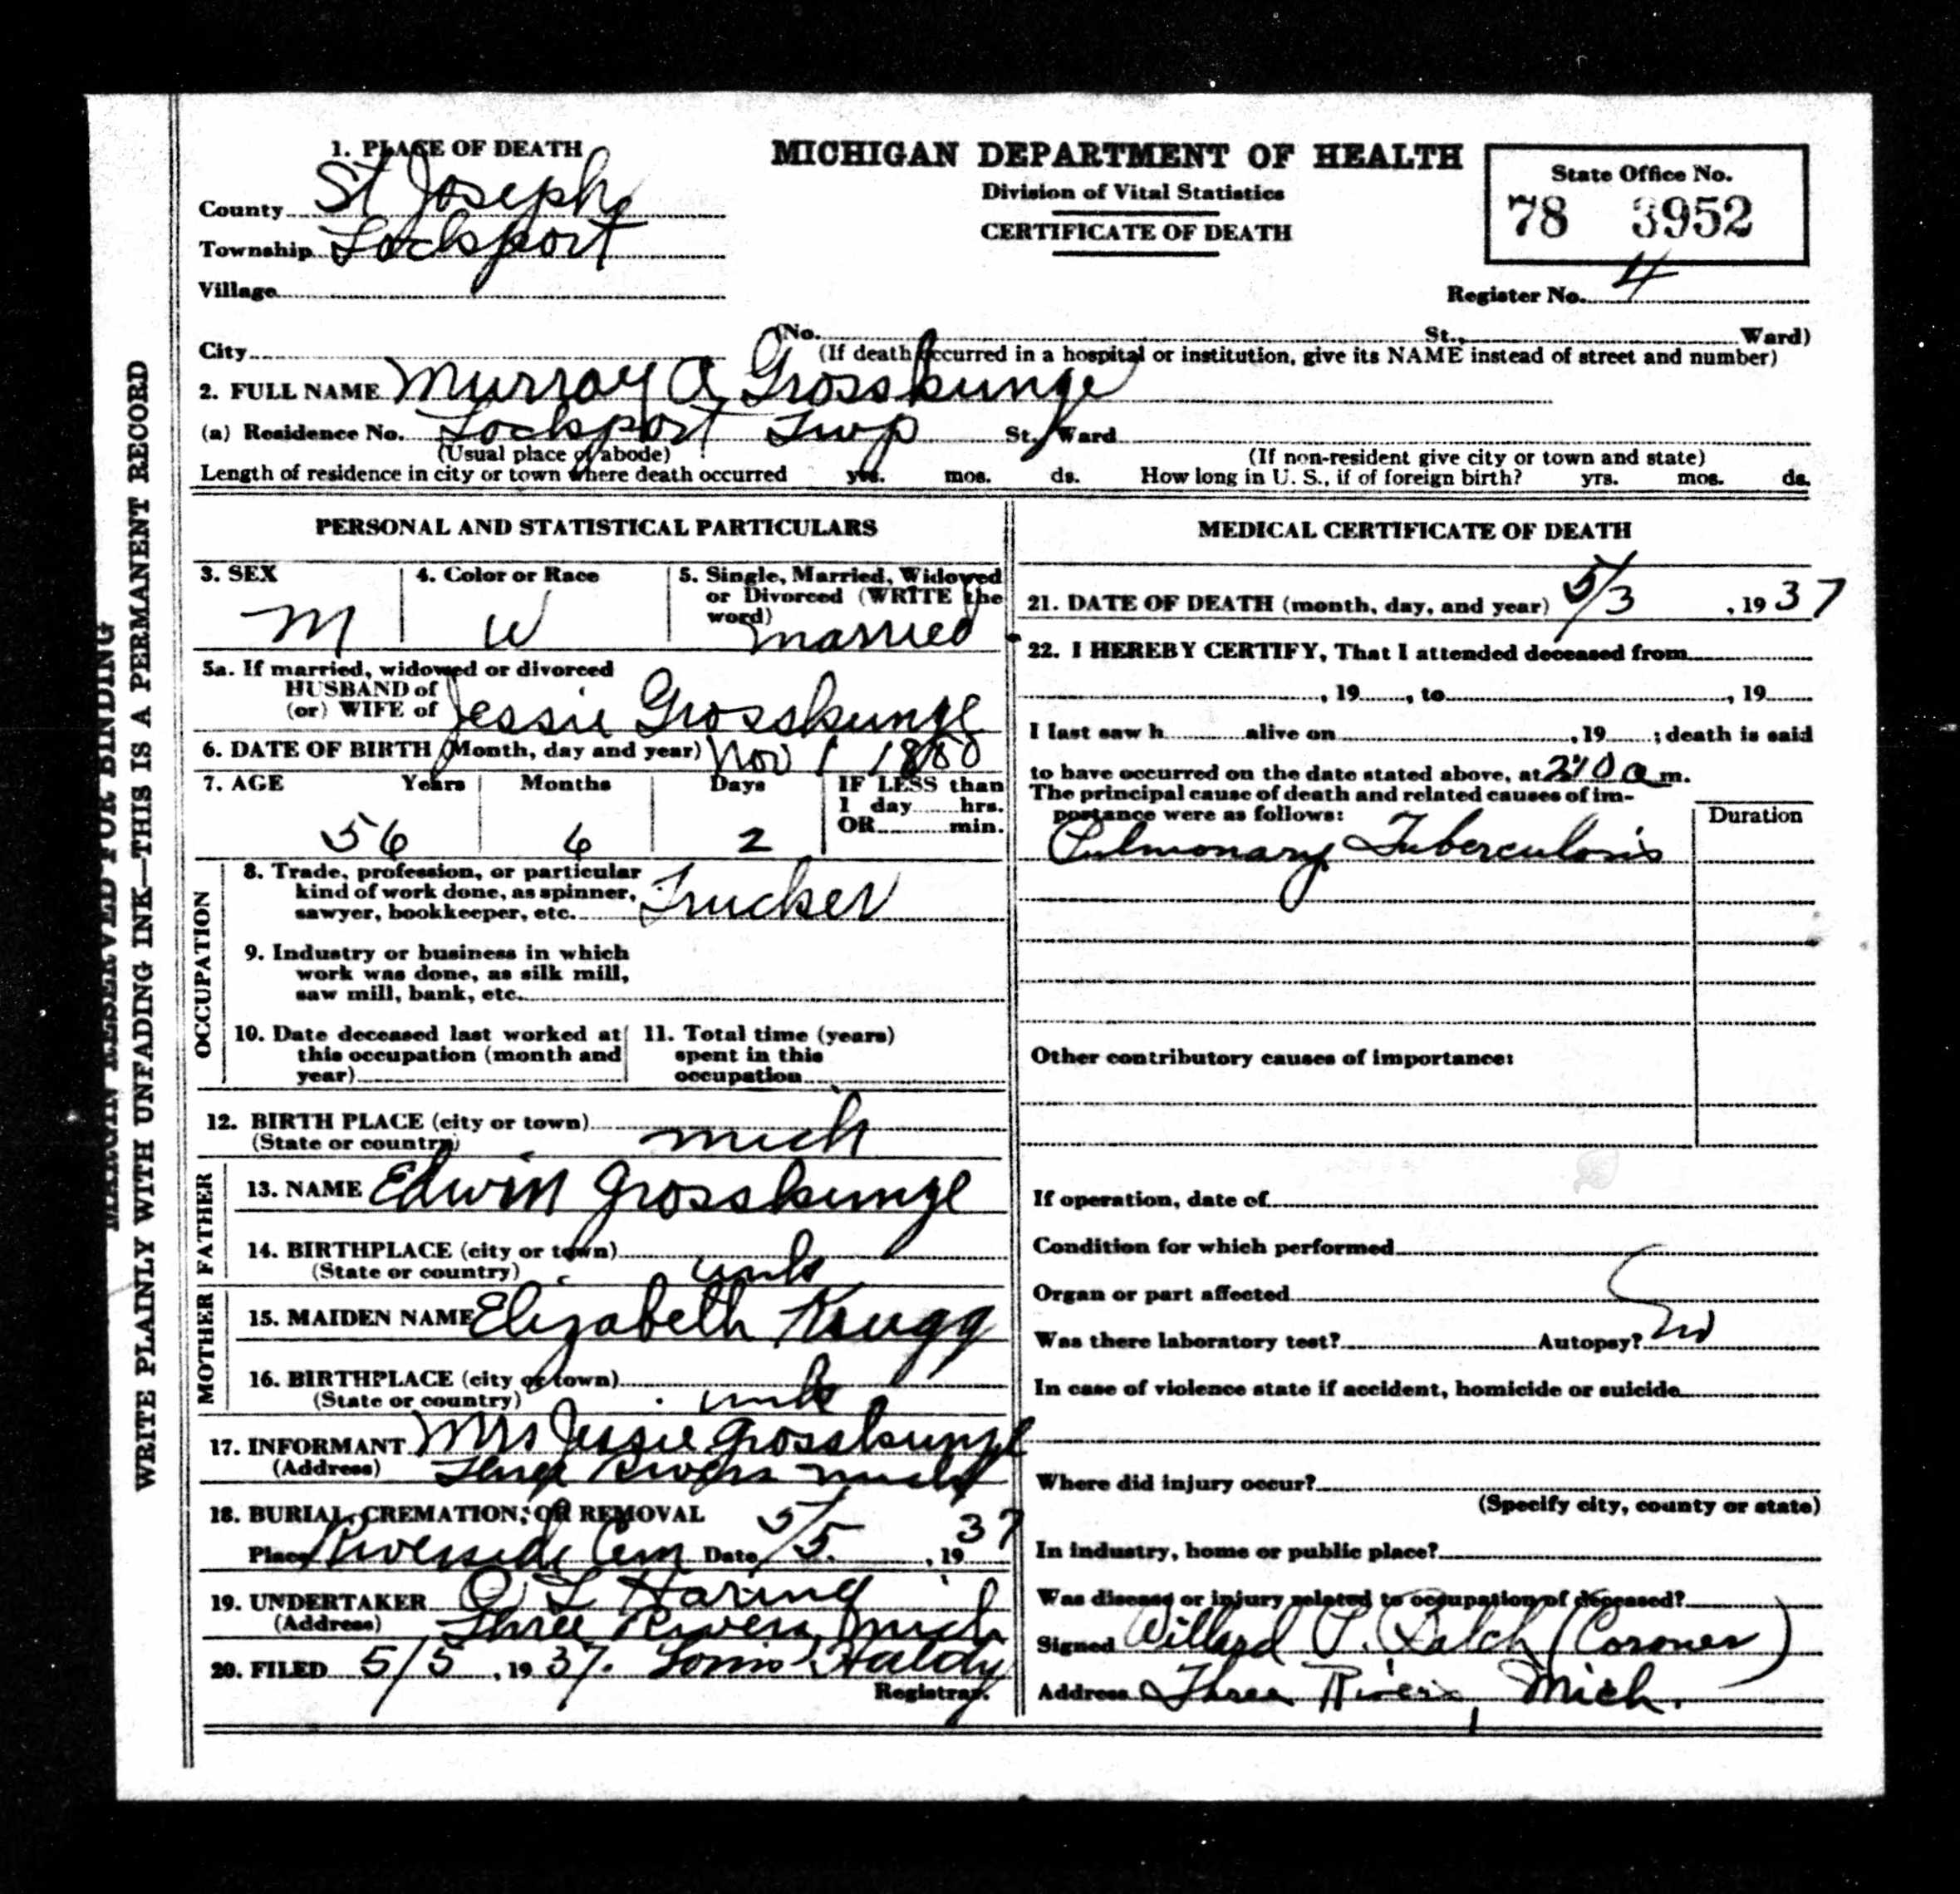 MARGIN RESERVED FOR BINDING
WRITE PLAINLY WITH UNFADING INK—THIS IS A PERMANENT RECORD
MICHIGAN DEPARTMENT OF HEALTH
Division of Vital Statistics
CERTIFICATE OF DEATH
State Office No.
78 3952
Register No. 4
1. PLACE OF DEATH
County St Joseph
Township Lockport
Village
City
(No. St., Ward)
(If death occurred in a hospital or institution, give its NAME instead of street and number)
2. FULL NAME Murray A Grosskunze
(a) Residence No. Lockport Twp St., Ward
(Usual place of abode) (If non-resident give city or town and state)
Length of residence in city or town where death occurred yrs. mos. ds. How long in U. S., if of foreign birth? yrs. mos. ds.
PERSONAL AND STATISTICAL PARTICULARS
3. SEX M
4. Color or Race W
5. Single, Married, Widowed
or Divorced (WRITE the
word) married
5a. If married, widowed or divorced
HUSBAND of
(or) WIFE of Jessie Grosskunze
6. DATE OF BIRTH (Month, day and year) Nov 1 1880
7. AGE Years Months Days IF LESS than
1 day hrs.
OR min.
56 6 2
OCCUPATION
8. Trade, profession, or particular
kind of work done, as spinner,
sawyer, bookkeeper, etc. Trucker
9. Industry or business in which
work was done, as silk mill,
saw mill, bank, etc.
10. Date deceased last worked at
this occupation (month and
year)
11. Total time (years)
spent in this
occupation
12. BIRTH PLACE (city or town)
(State or country) Mich
FATHER
13. NAME Edwin Grosskunze
14. BIRTHPLACE (city or town)
(State or country) unk
MOTHER
15. MAIDEN NAME Elizabeth Krugg
16. BIRTHPLACE (city or town)
(State or country) unk
17. INFORMANT Mrs Jessie Grosskunze
(Address) Three Rivers Mich
18. BURIAL, CREMATION, OR REMOVAL
Place Riverside Cem Date 5/5, 1937
19. UNDERTAKER O L Haring
(Address) Three Rivers Mich
20. FILED 5/5, 1937. Haldy
Registrar.
MEDICAL CERTIFICATE OF DEATH
21. DATE OF DEATH (month, day, and year) 5/3, 1937
22. I HEREBY CERTIFY, That I attended deceased from
, 19 , to , 19
I last saw h alive on , 19 ; death is said
to have occurred on the date stated above, at 2:10 a m.
The principal cause of death and related causes of im-
portance were as follows: Duration
Pulmonary Tuberculosis
Other contributory causes of importance:
If operation, date of
Condition for which performed
Organ or part affected
Was there laboratory test? Autopsy? No
In case of violence state if accident, homicide or suicide
Where did injury occur?
(Specify city, county or state)
In industry, home or public place?
Was disease or injury related to occupation of deceased?
Signed Willard P. Balch (Coroner)
Address Three Rivers, Mich.